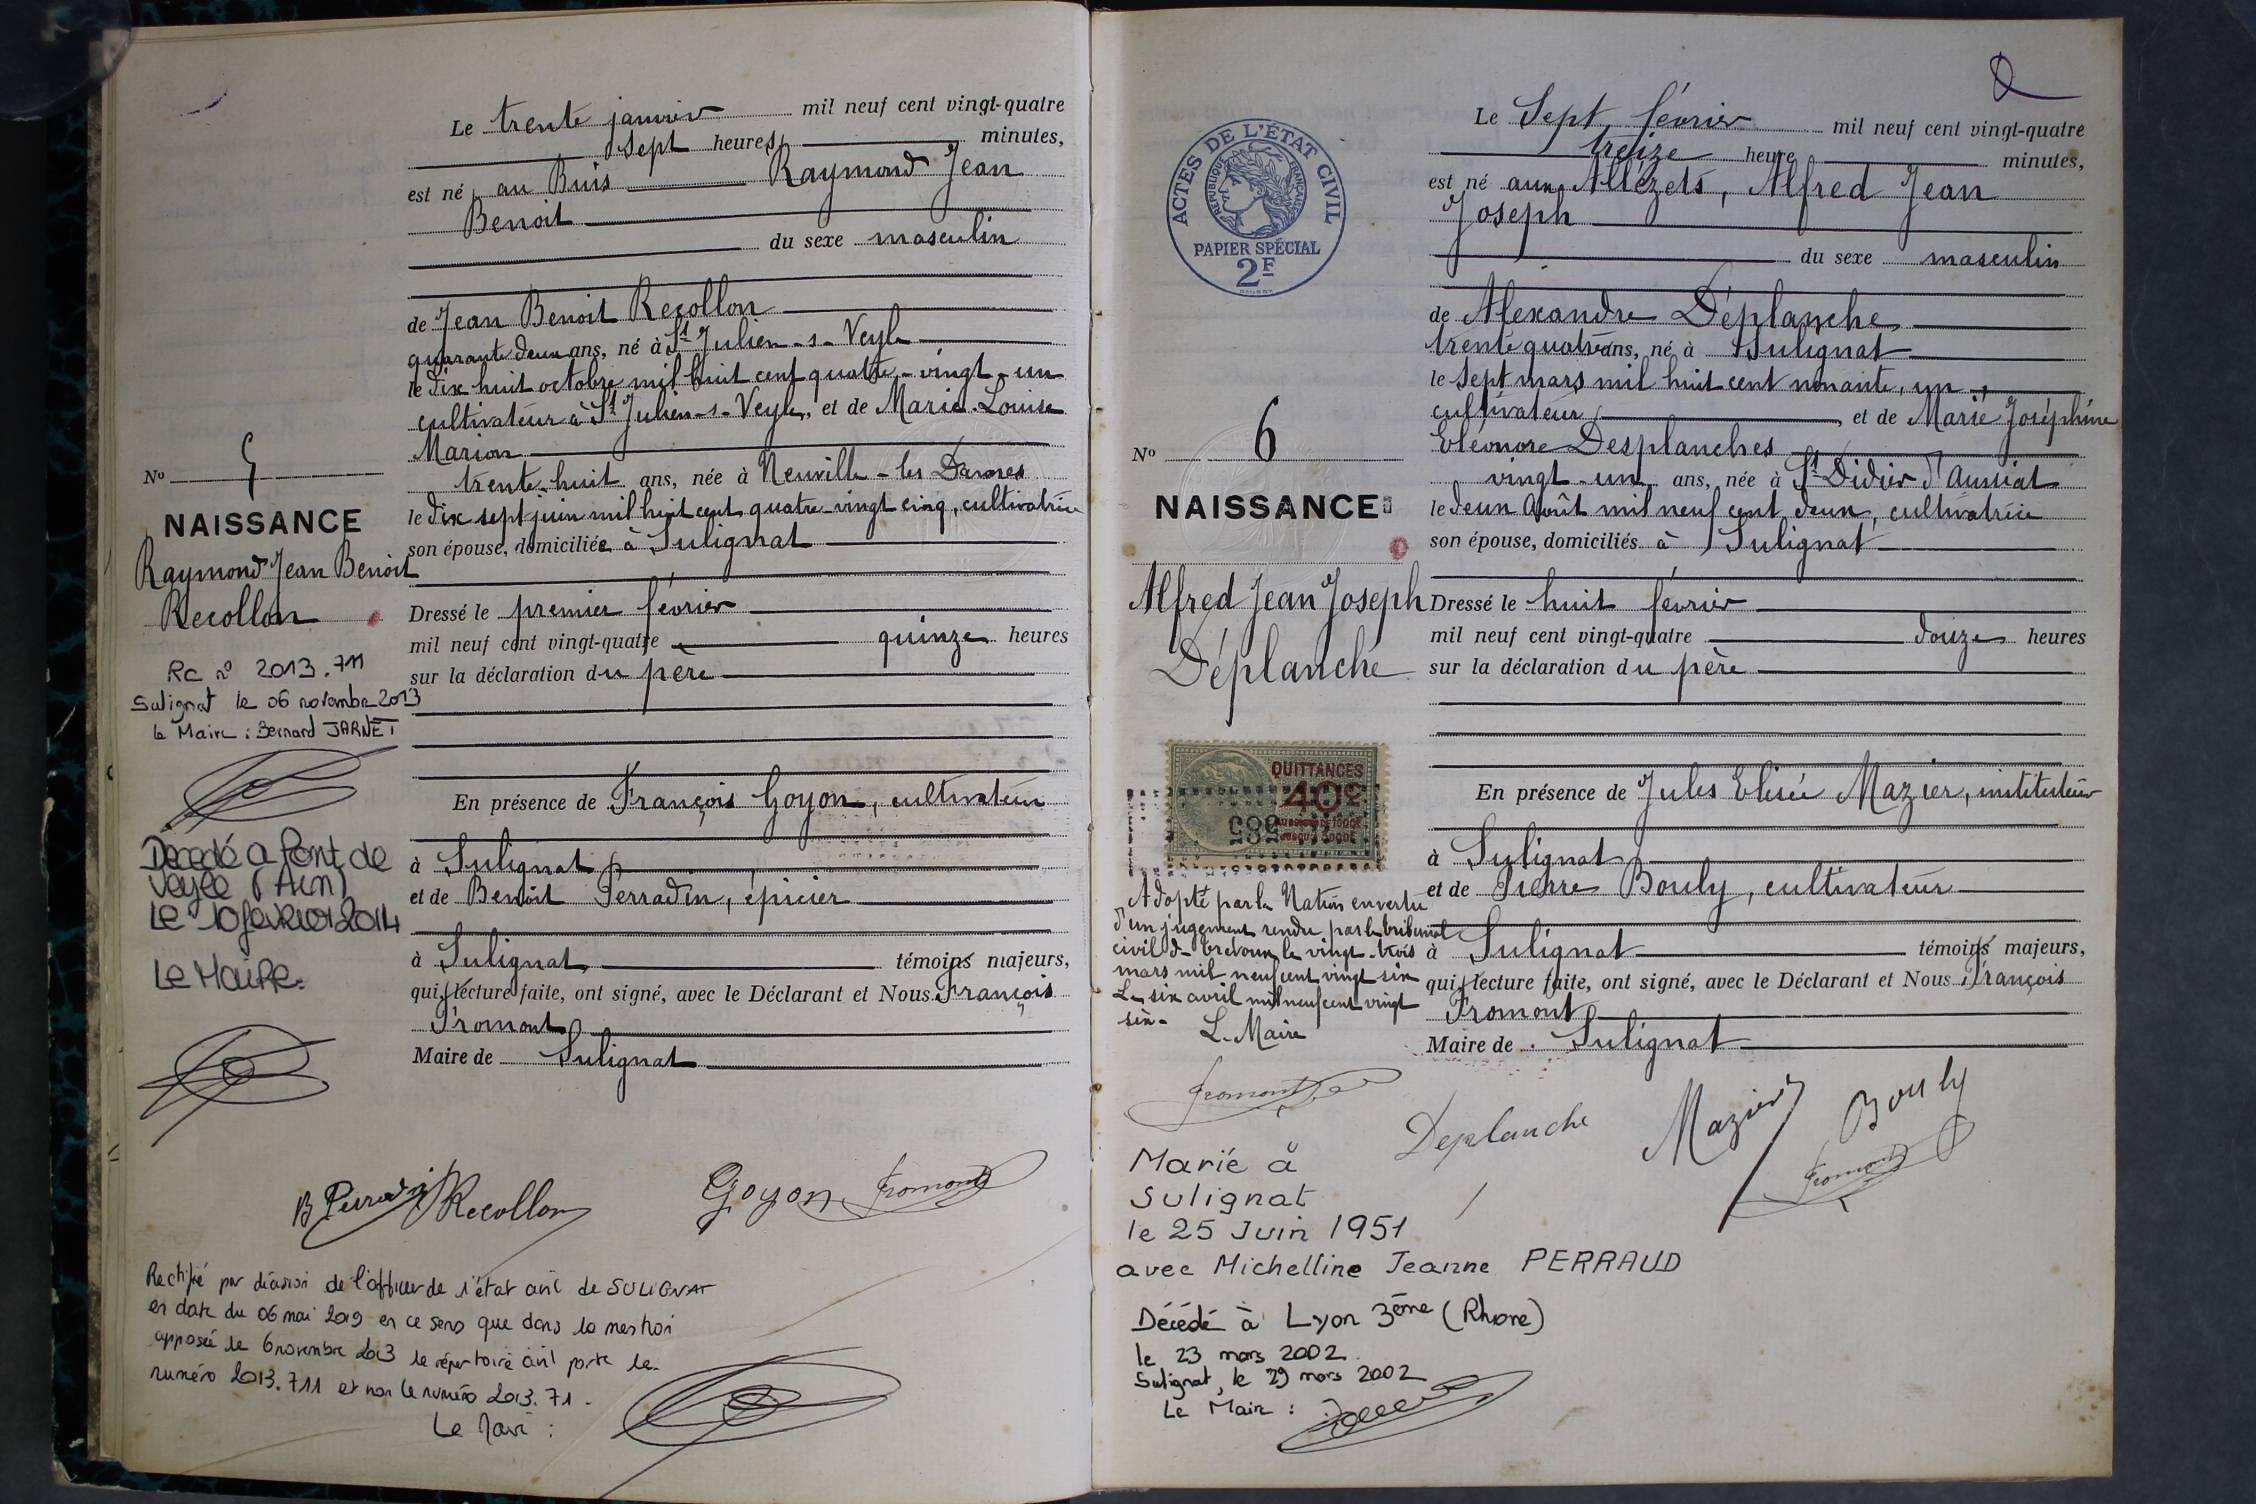 Le trente janvier mil neuf cent vingt-quatre
sept heures, minutes,
est né au Buis Raymond Jean
Benoit
du sexe masculin
de Jean Benoit Recollon
quarante deux ans, né à St Julien-s-Veyle
le dix huit octobre mil huit cent quatre-vingt-un
cultivateur à St Julien-s-Veyle, et de Marie-Louise
Marion
trente-huit ans, née à Neuville-les Dames
le dix sept juin mil huit cent quatre-vingt cinq, cultivatrice
son épouse, domiciliée à Sulignat
Dressé le premier février
mil neuf cent vingt-quatre quinze heures
sur la déclaration du père
En présence de François Goyon, cultivateur
à Sulignat
et de Benoit Perradin, épicier
à Sulignat témoins majeurs,
qui, lecture faite, ont signé, avec le Déclarant et Nous François
Fromont
Maire de Sulignat
No 5
NAISSANCE
Raymond Jean Benoit
Recollon
Rc n° 2013.711
Sulignat le 06 novembre 2013
le Maire : Bernard JARNET
Decedé a Pont de
Veyle (Ain)
Le 10 fevrier 2014
Le Maire.
B Perradin Recollon Goyon Fromont
Rectifié par décision de l'officier de l'état civil de SULIGNAT
en date du 06 mai 2019 en ce sens que dans la mention
apposée le 6 novembre 2013 le répertoire civil porte le
numéro 2013.711 et non le numéro 2013.71.
Le Maire :
2
ACTES DE L'ÉTAT CIVIL
RÉPUBLIQUE FRANÇAISE
PAPIER SPÉCIAL
2F
Le Sept février mil neuf cent vingt-quatre
treize heure minutes,
est né aux Allézets, Alfred Jean
Joseph
du sexe masculin
de Alexandre Déplanche
trente quatre ans, né à Sulignat
le sept mars mil huit cent nonante, un,
cultivateur, et de Marie Joséphine
Eléonore Desplanches
vingt-un ans, née à St Didier d'Aussiat
le deux Août mil neuf cent deux, cultivatrice
son épouse, domiciliés à Sulignat
Dressé le huit février
mil neuf cent vingt-quatre douze heures
sur la déclaration du père
En présence de Jules Elisée Mazier, instituteur
à Sulignat
et de Pierre Bouly, cultivateur
à Sulignat témoins majeurs,
qui, lecture faite, ont signé, avec le Déclarant et Nous, François
Fromont
Maire de Sulignat
No 6
NAISSANCE
Alfred Jean Joseph
Déplanche
QUITTANCES
40c
585
Adopté par la Nation en vertu
d'un jugement rendu par le tribunal
civil de Trévoux le vingt-trois
mars mil neuf cent vingt six
Le six avril mil neuf cent vingt
six-
Le Maire
Fromont
Deplanche Mazier Bouly
Fromont
Marié à
Sulignat
le 25 Juin 1951
avec Michelline Jeanne PERRAUD
Décédé à Lyon 3ème (Rhone)
le 23 mars 2002.
Sulignat, le 29 mars 2002
Le Maire :